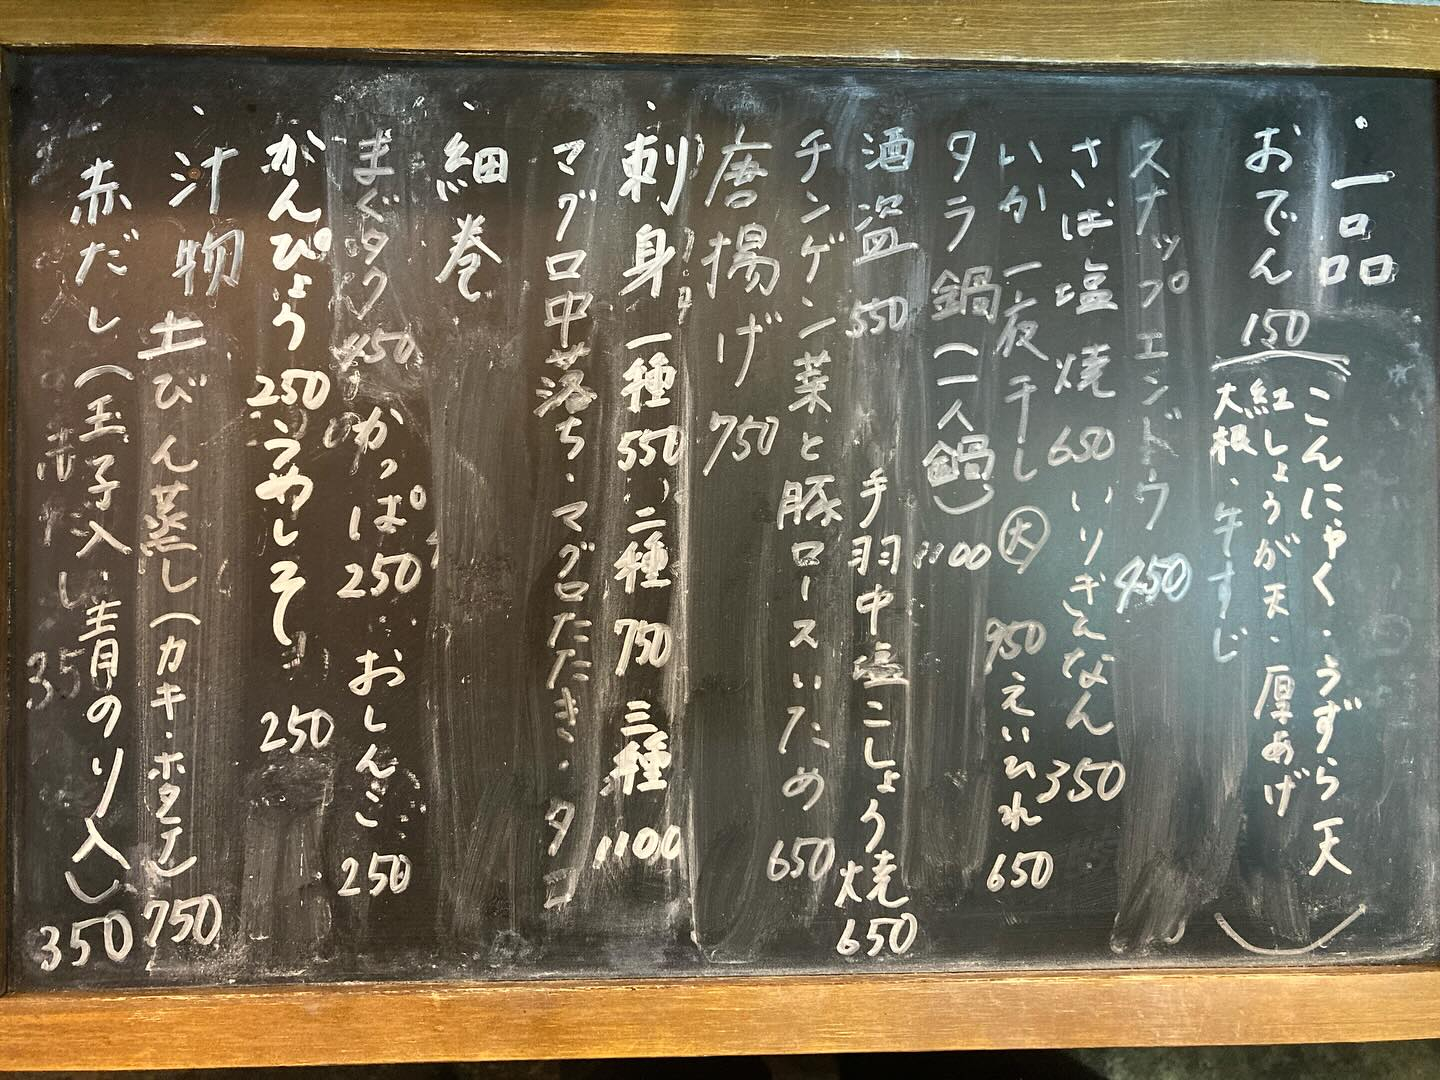 ・一品
おでん 150（こんにゃく・うずら天
紅しょうが天・厚あげ
大根・牛すじ）
スナップエンドウ 450
さば塩焼 650 いりぎんなん 350
いか一夜干し 大 950 えいひれ 650
タラ鍋（一人鍋） 1100
酒盗 550 手羽中塩こしょう焼 650
チンゲン菜と豚ロースいため 650
唐揚げ 750
・刺身 一種 550 二種 750 三種 1100
マグロ中落ち・マグロたたき・タコ
・細巻
まぐタク 450 かっぱ 250 おしんこ 250
かんぴょう 250 うめしそ 250
・汁物 土びん蒸し（カキ・ホタテ） 750
赤だし（玉子入し 青のり入） 350